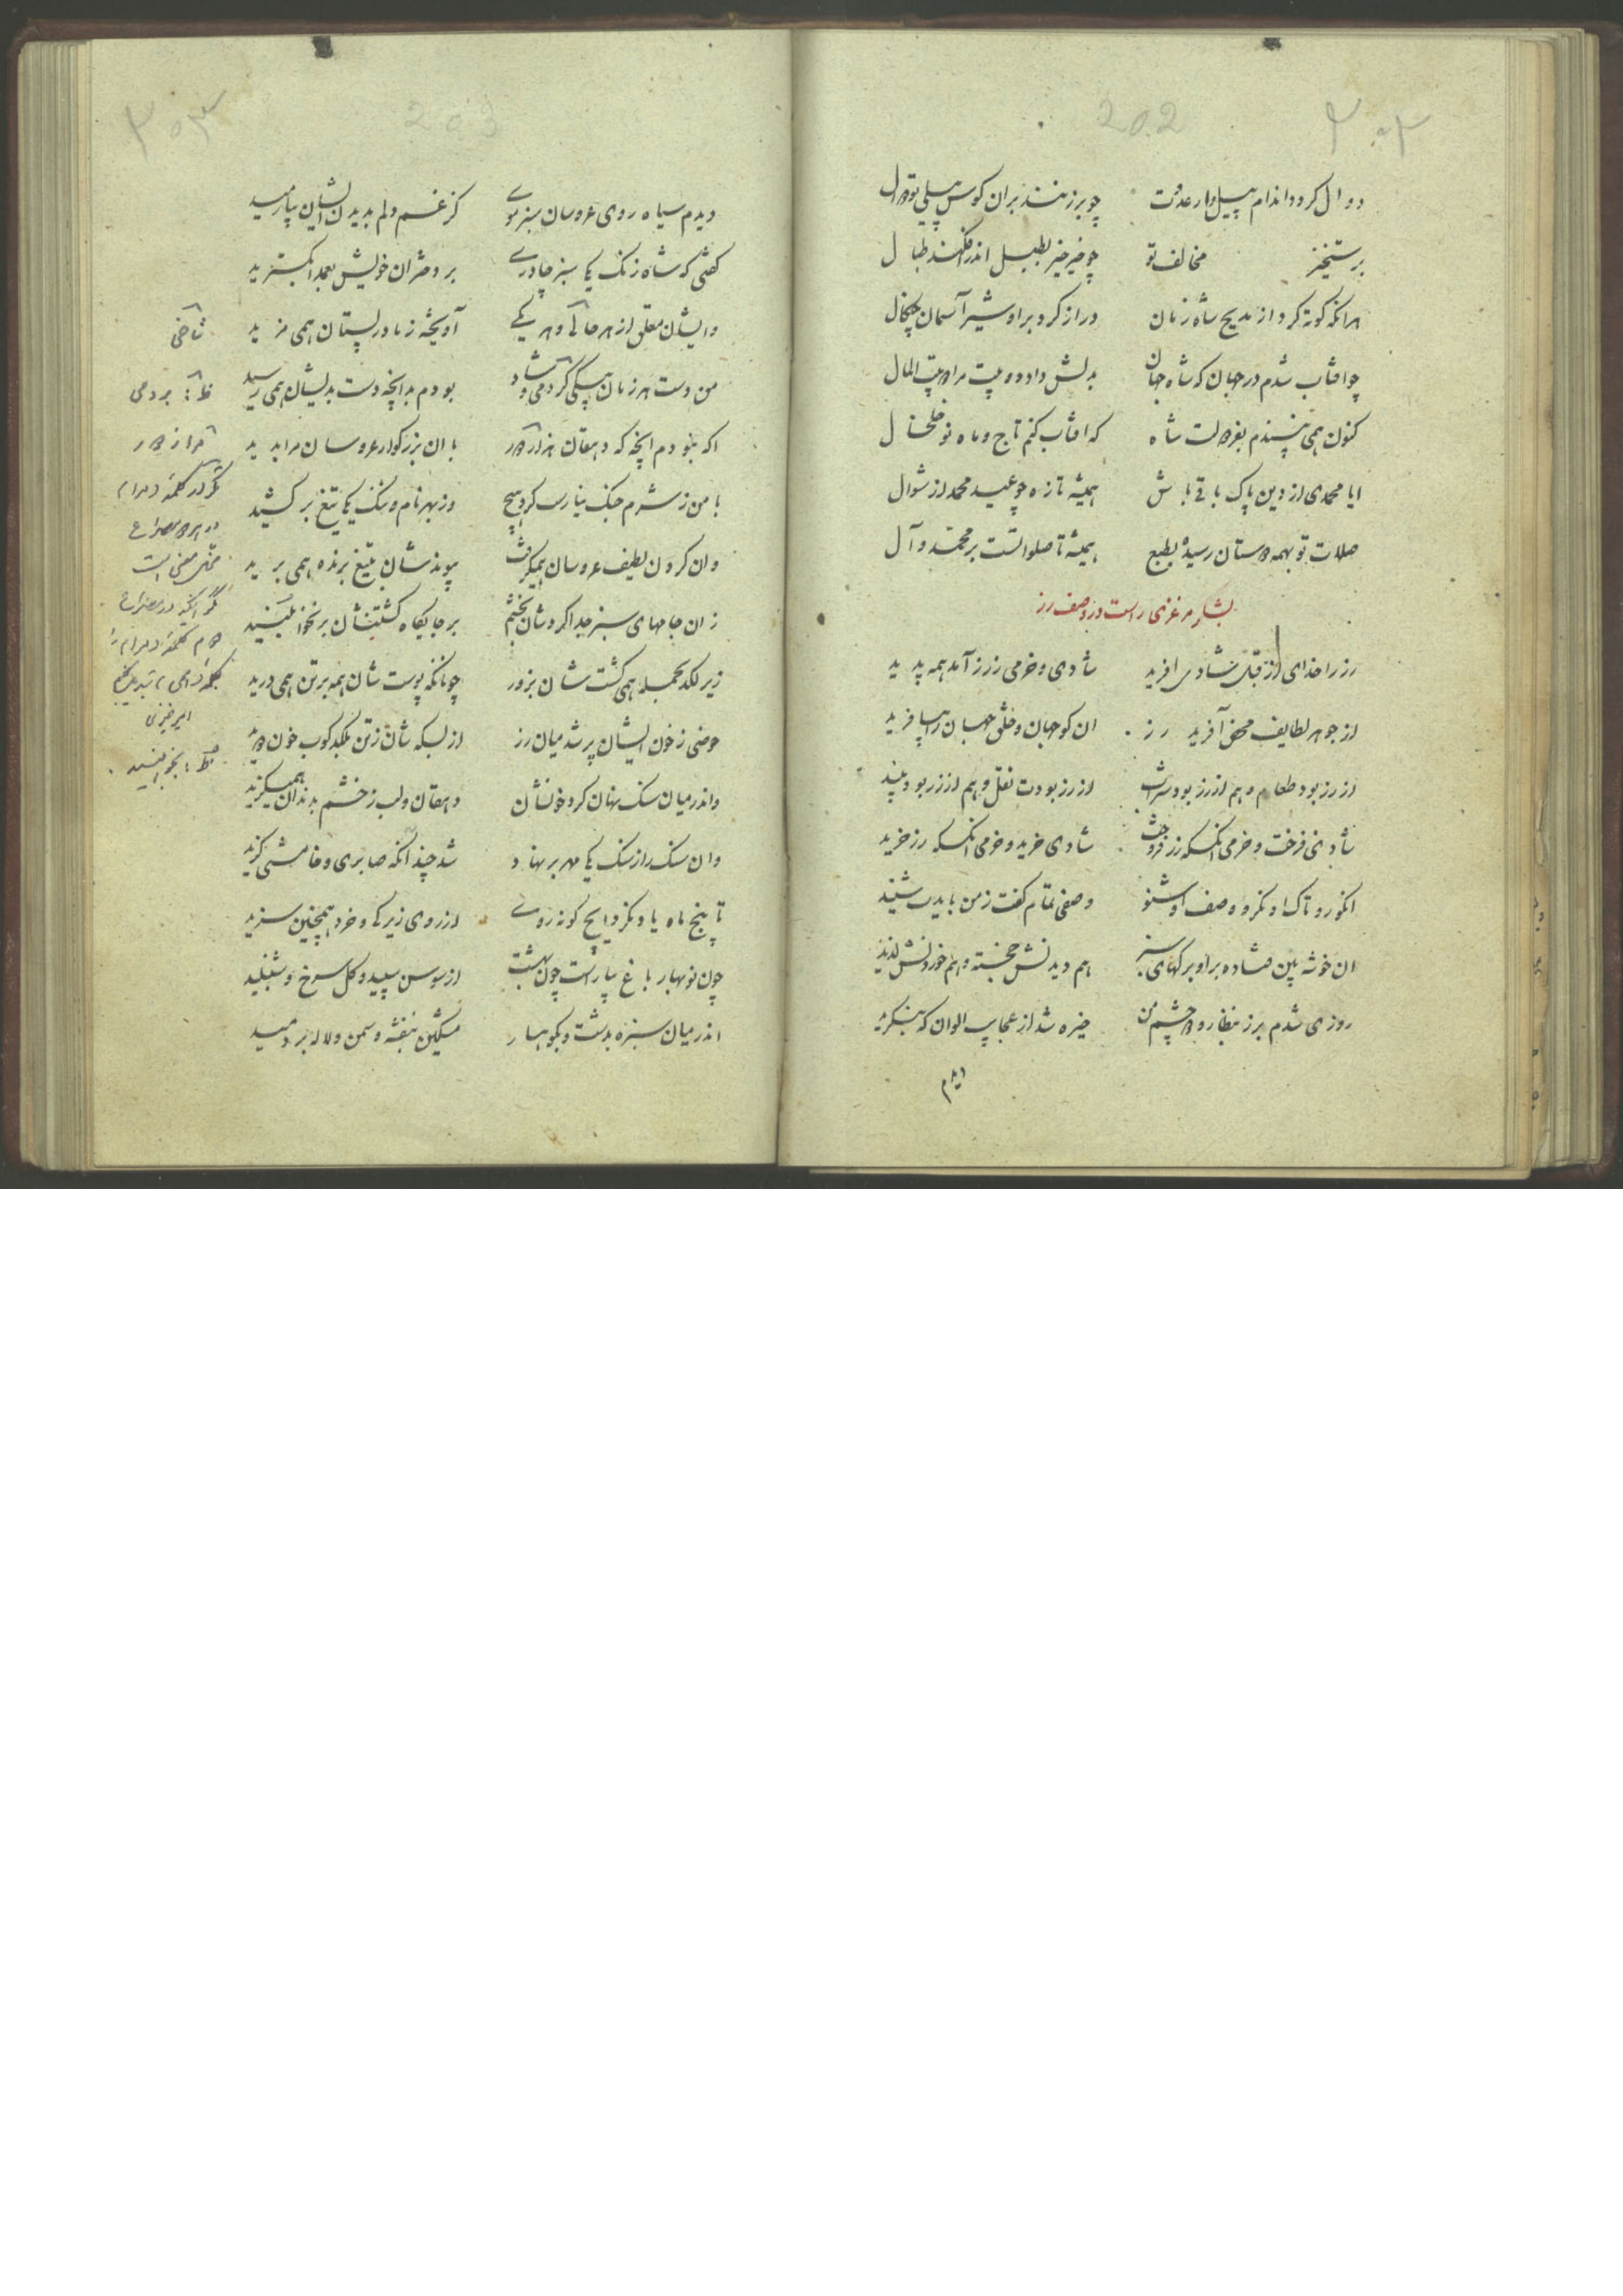 ۲۰۲ 202
دوال کردد اندام پیل وار عدوت چو برزنند بران کوس پیلی تو دوال
برستخیز مخالف تو چو خیز خیز بطبل اندر افکند طبال
هرانکه کوته کرد از مدیح شاه زبان دراز کرد بر او شیر آسمان چنکال
چو افتاب شدم در جهان که شاه جهان بدلش داد دو بیت مرا دو بیت المال
کنون همی نپسندم بفر دولت شاه که افتاب کنم تاج و ماه نو خلخال
ایا محمدی از دین پاک باقی باش همیشه تازه چو عید محمد از شوال
صلات تو بهمه دوستان رسیده بطبع همیشه تا صلواتست بر محمد و آل
بشار مرغزی راست در وصف رز
رز را خدای از قبل شادی افرید شادی و خرمی ز رز آمد همه پدید
از جوهر لطایف محض آفرید رز ان کو جهان و خلق جهان را بیافرید
از رز بود طعام و هم از رز بود شراب از رز بودت نقل و هم از رز بود نبید
شادی فرخت و خرمی انکسکه رز فروخت شادی خرید و خرمی انکسکه رز خرید
انکور و تاک او نکر و وصف او شنو وصفی تمام کفت ز من بایدت شنید
ان خوشه بین فتاده بر او برکهای سبز هم دیدنش خجسته و هم خوردنش لذیذ
روزی شدم برز بنظاره دو چشم من خیره شد از عجایب الوان که بنکرید
دیدم
۲۰۳ 203
دیدم سیاه روی عروسان سبز موی کز غم دلم بدیدن ایشان بیارمید
کفتی که شاه زنک یکی سبز چادری بر دختران خویش بعمدا بکسترید
وایشان معلق از هر جائی و هر یکی آویخته ز مادر پستان همی مزید
من دست هر زمان بیکی کردمی دراز بودم بدانچه دست بدیشان همی رسید
اکه نبودم انچه که دهقان هزار بار با ان بزرکوار عروسان مرا بدید
با من ز شرم جنک نیارست کرد هیچ وز بهر نام و ننک یکی تیغ بر کشید
وان کردن لطیف عروسان همیکرفت پیوندشان بتیغ برنده همی برید
زان جامهای سبز جدا کردشان بخشم بر جایکاه کشتنشان بر نخوابنید
زیر لکد بجمله همی کشت شان بزور چونانکه پوست شان همه بر تن همی درید
حوضی ز خون ایشان پر شد میان رز از بسکه شان ز تن بلکد کوب خون دوید
واندر میان سنک نهان کرد خونشان دهقان و لب ز خشم بدندان همیکزید
وان سنک را ز سنک یکی مهر بر نهاد شد چند انکه صابری و خامشی کزید
تا پنج ماه یاد نکرد ایچ کونه زوی از روی زیرکی و خرد همچنین سزید
چون نوبهار باغ بیاراست چون بهشت از سوسن سپید و کل سرخ و شنبلید
اندر میان سبزه بدشت و بکوهسار مشکین بنفشه و سمن و لاله بر دمید
شاخی
ظ: بردمی
مکر در کلمه
در هر دو مصراع
مخل معنی است
مکر انکه در مصراع
دوم کلمه
امیر خیزی
ظ: بخوابنید